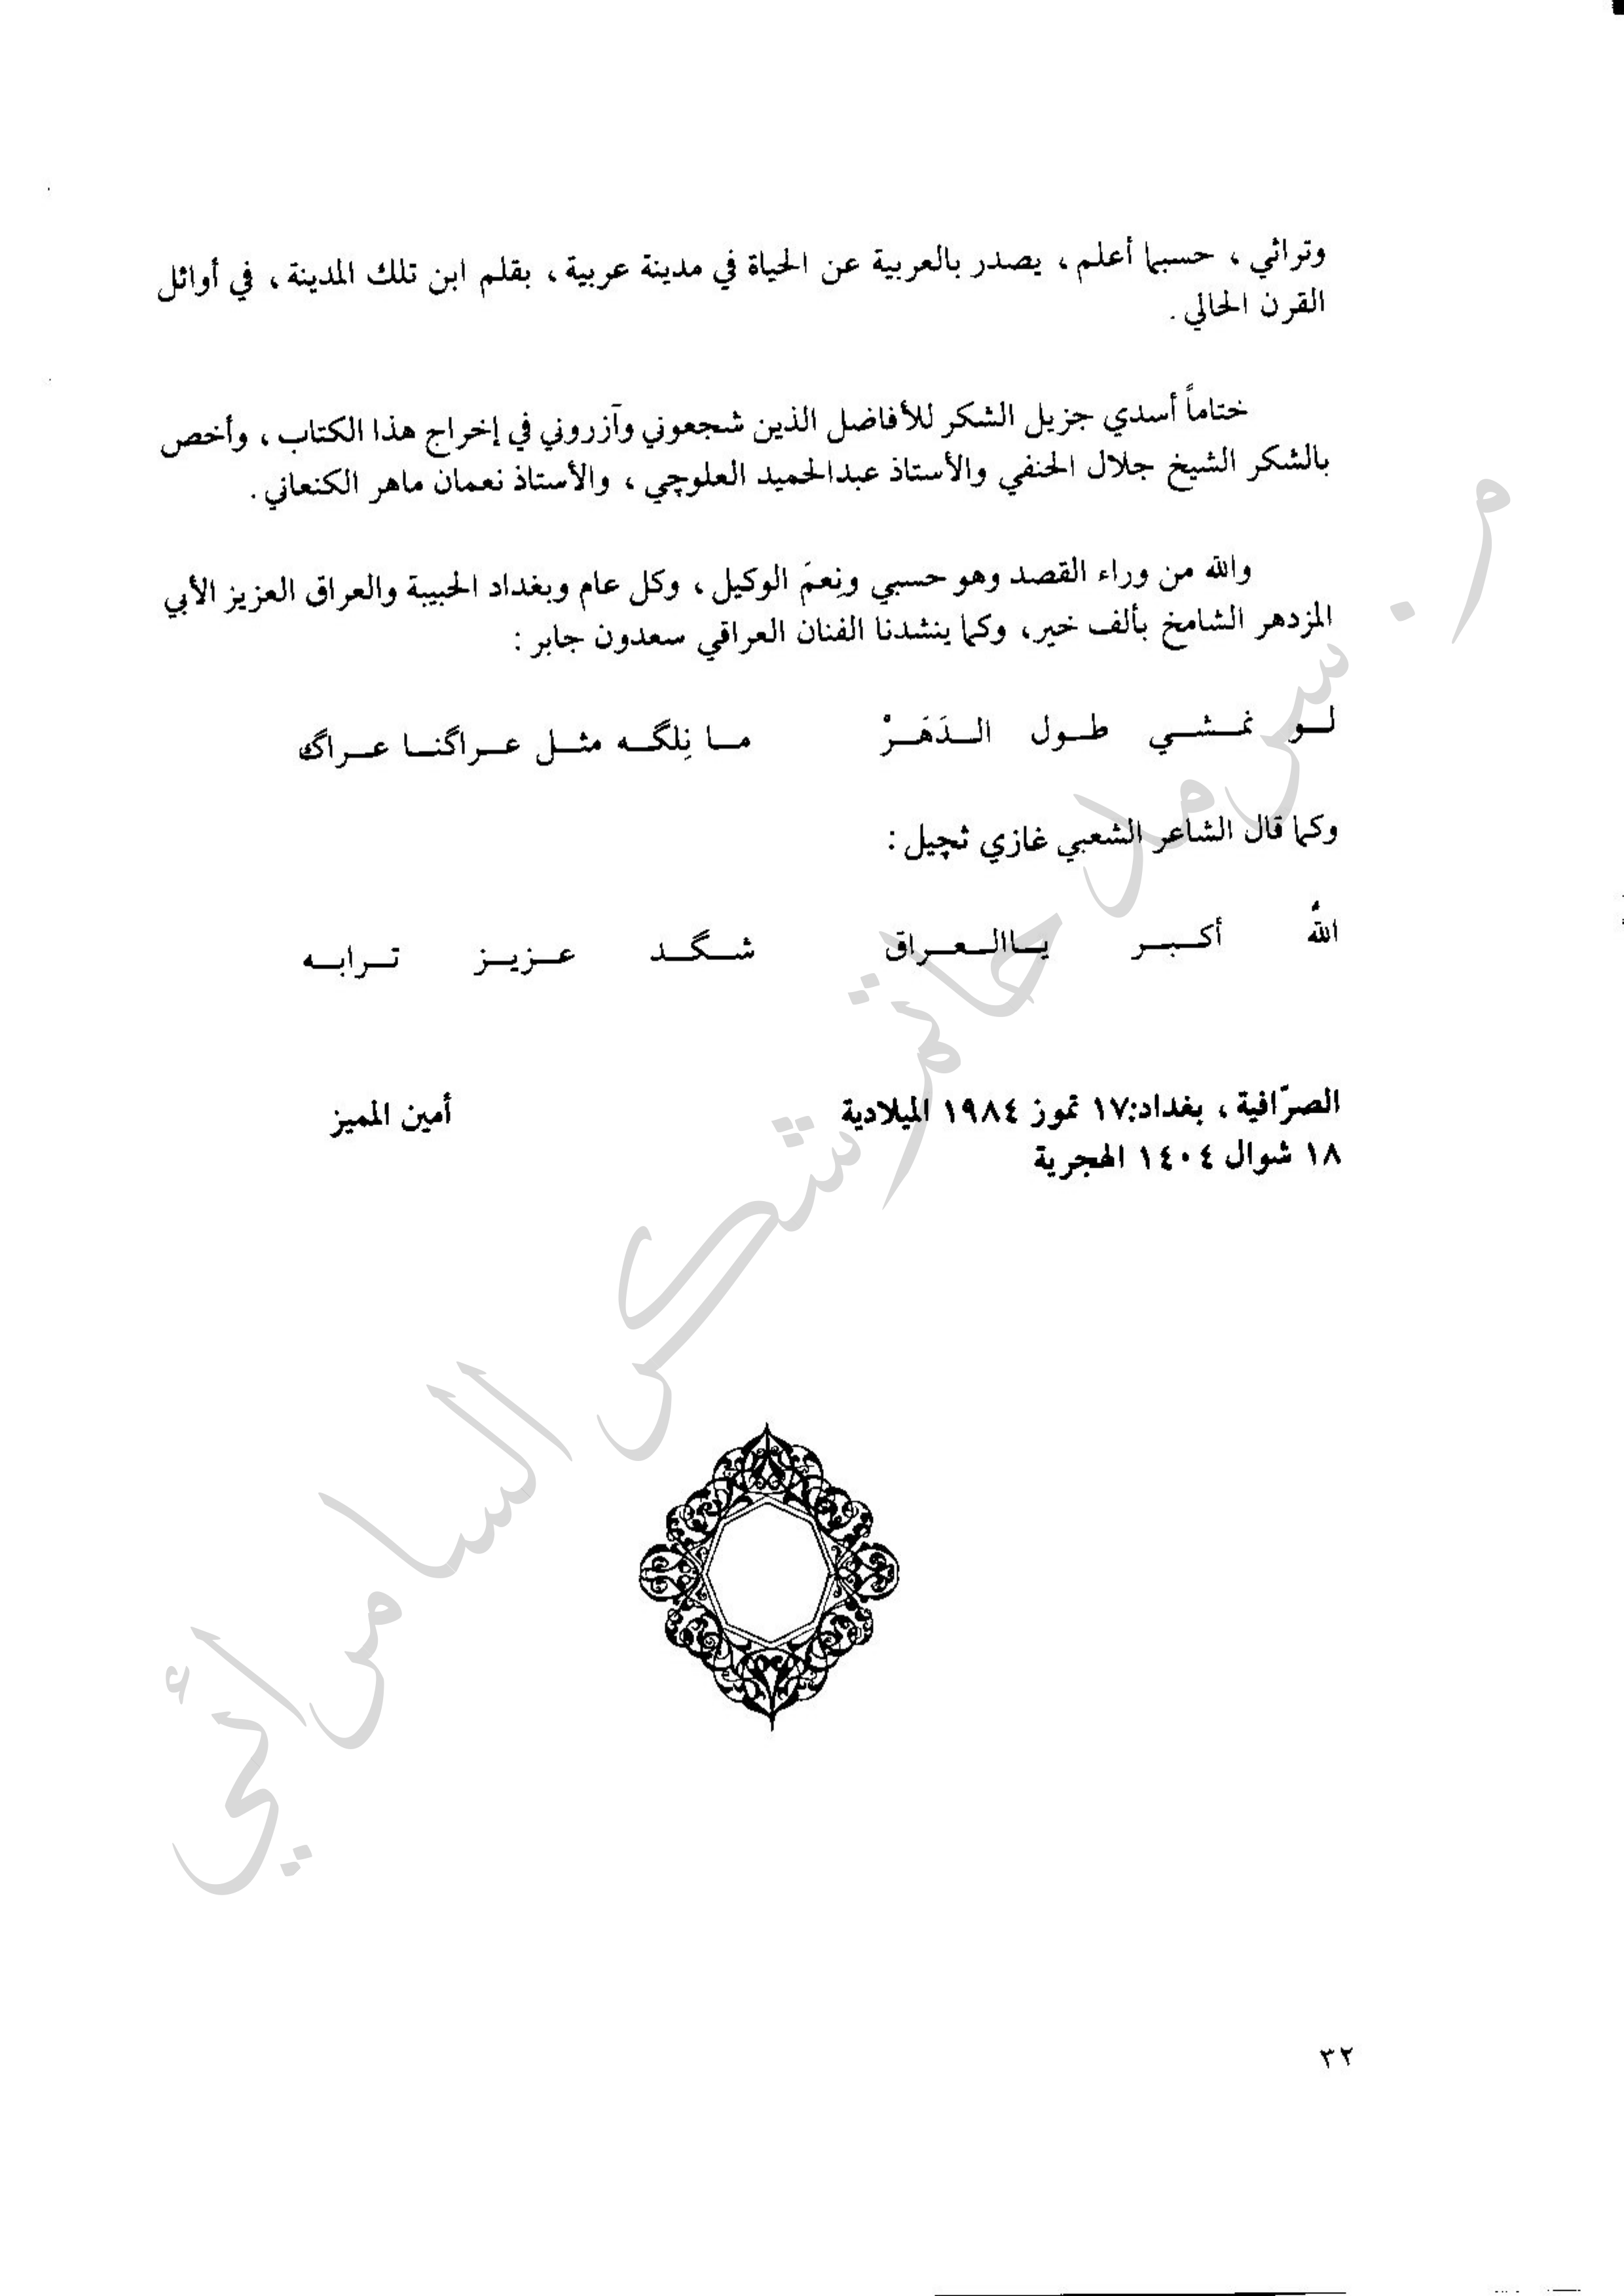 وتراثي ، حسبما أعلم ، يصدر بالعربية عن الحياة في مدينة عربية ، بقلم ابن تلك المدينة ، في أوائل
القرن الحالي .
ختاماً أسدي جزيل الشكر للأفاضل الذين شجعوني وآزروني في إخراج هذا الكتاب ، وأخص
بالشكر الشيخ جلال الحنفي والأستاذ عبدالحميد العلوچي ، والأستاذ نعمان ماهر الكنعاني .
والله من وراء القصد وهو حسبي ونِعمَ الوكيل ، وكل عام وبغداد الحبيبة والعراق العزيز الأبي
المزدهر الشامخ بألف خير، وكما ينشدنا الفنان العراقي سعدون جابر :
لو نمشي طول الدَهَرْ ما نِلگه مثل عراگنا عراگ
وكما قال الشاعر الشعبي غازي ثجيل :
اللهُ أكبر ياالعراق شگد عزيز ترابه
الصرّافية ، بغداد:١٧ تموز ١٩٨٤ الميلادية أمين المميز
١٨ شوال ١٤٠٤ الهجرية
م. سرمد حاتم شكر السامرائي
٣٢